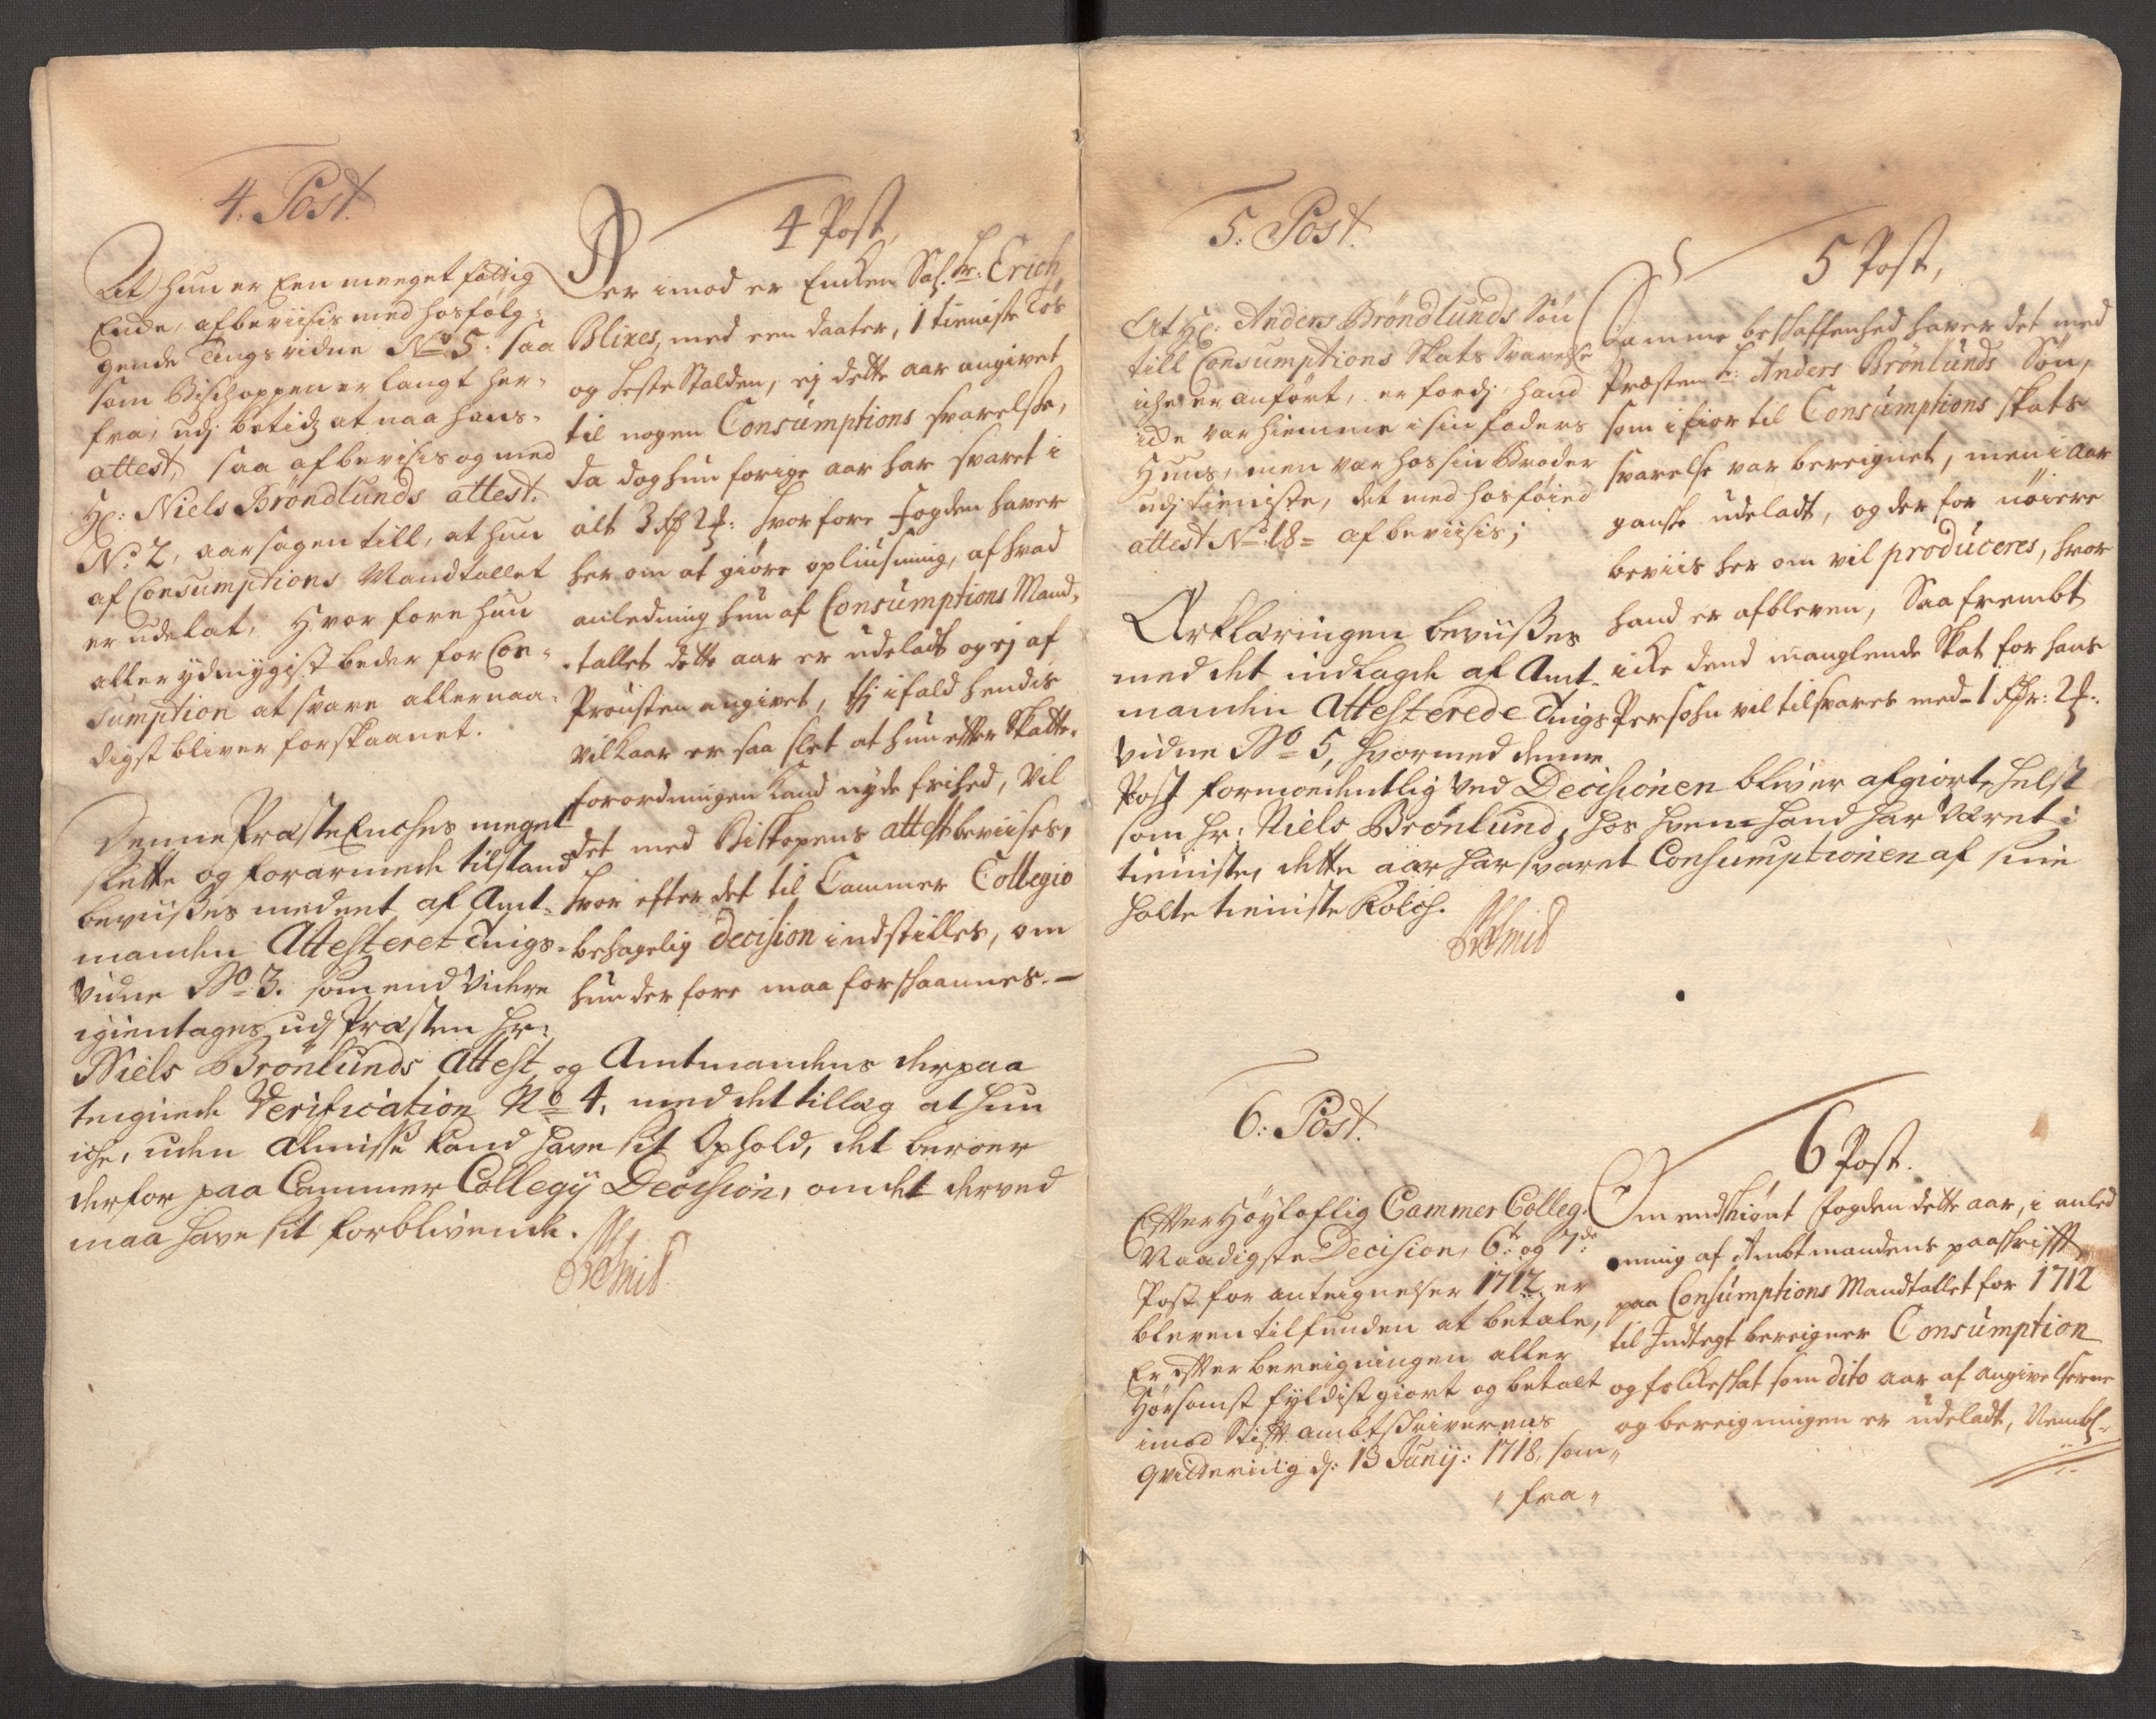 4. Post.
At hun er Een meeget fattig
Encke, afbeviisis med hosfølg-
gende Tingsvidne No 5: saa
som Bischoppen er langt her-
fra, udj betidz at naa hans
attest, saa afbevisis og med
Hr: Niels Brøndlunds attest.
No. 2, aarsagen till, at hun
af Consumptions Mandtallet
er udelat, Hvorfore hun
aller ydmygist beder for Con-
sumption at svare allernaa-
digst bliver forskaanet.
Denne Præste Enches meget
slette og forarmede tilstand
beviißes med et af Amt-
manden Attesteret Tings-
vidne No 3. som end videre
igientages udj Præsten Hr:
Niels Brønlunds Attest og Amtmandens derpaa
tegnede Verification No 4, med det tillæg at hun
iche, uden Almisse kand have sit Ophold, det beroer
derfor paa Cammer Collegij Decision, om det derved
maa have sit forblivende.
4 Post,
Der imod er Encken Sal. Hr: Erich
Blixes, med een daater, 1 tieniste Tøs
og Heste Stalden, ej dette aar angivet
til nogen Consumptions svarelse,
da dog hun forige aar har svaret i
alt 3 Rdr 2 ß: Hvorfore Fogden haver
her om at giøre opliusning, af hvad
anledning hun af Consumptions Mand-
tallet dette aar er udeladt og ej af
Prousten angivet, thj ifald hendis
vilkaar er saa slet at hun efter Skatte-
forordningen kand nyde frihed, vil
det med Biskopens attest beviises,
hvor efter det til Cammer Collegio
behagelig decision indstilles, om
hun derfore maa forskaannes.
5: Post.
At Hr: Anders Brøndlunds Søn
till Consumptions Skats svarelse
iche er anført, er fordj hand
icke var hiemme i sin faders
Huus, men var hos sin Broder
udj tieniste, det med hosføied
attest No 18 = afbeviisis;
Erklæringen beviißes
med det indlagde af Amt-
manden Attesterede Tings
vidne No 5, hvormed denne
Post formoedentlig ved Decisionen bliver afgiort, helst
som Hr: Niels Brønlund, hos hvem hand har været i
tieniste, dette aar har svaret Consumptionen af sine
holte tieniste Folch.
5 Post,
Samme beskaffenhed haver det med
Præsten Hr: Anders Brønlunds Søn,
som i fior til Consumptions skats
svarelse var bereignet, men i aar
ganske udeladt, og der for nøiere
beviis her om vil produceres, hvor
hand er afbleven, Saa frembt
icke dend manglende Skat for hans
Persohn vil tilsvares med - 1 Rdr: 2 ß:
6: Post.
Efter Høyloflig Cammer Colleg.
Naadigste Decision, 6te og 7de
Post for antegnelser 1712 er
bleven tilfunden at betale,
Er efter bereigningen aller
Hørsomst fyldistgiort og betalt
imod Stift ambtskriverens
Qvittering d: 13 Junij: 1718, som
fra
6 Post.
Omendskiønt fogden dette aar, i anled
ning af Ambtmandens paaskrifft
paa Consumptions Mandtallet for 1712
til Indtegt bereigner Consumption
og folkeskat som dito aar af angivelserne
og bereigningen er udeladt, Nembl.